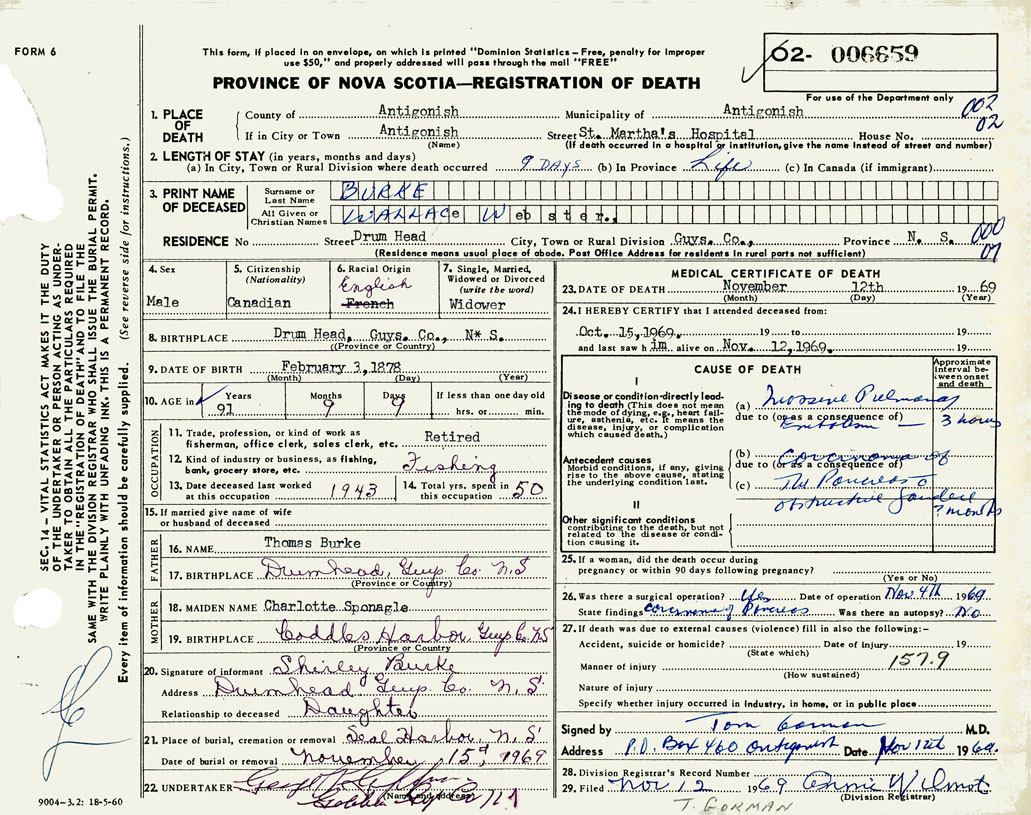 FORM 6
This form, if placed in an envelope, on which is printed "Dominion Statistics – Free, penalty for improper
use $50," and properly addressed will pass through the mail "FREE"
PROVINCE OF NOVA SCOTIA—REGISTRATION OF DEATH
62- 006659
For use of the Department only
002
02
1. PLACE OF DEATH
County of Antigonish Municipality of Antigonish
If in City or Town Antigonish Street St. Martha's Hospital House No.
(Name) (If death occurred in a hospital or institution, give the name instead of street and number)
2. LENGTH OF STAY (in years, months and days)
(a) In City, Town or Rural Division where death occurred 9 DAYS (b) In Province Life (c) In Canada (if immigrant)
3. PRINT NAME OF DECEASED
Surname or Last Name BURKE
All Given or Christian Names WALLACe Webster.
000
07
RESIDENCE No Street Drum Head City, Town or Rural Division Guys. Co., Province N. S.
(Residence means usual place of abode. Post Office Address for residents in rural parts not sufficient)
4. Sex
Male
5. Citizenship
(Nationality)
Canadian
6. Racial Origin
English
French
7. Single, Married,
Widowed or Divorced
(write the word)
Widower
8. BIRTHPLACE Drum Head, Guys. Co., N* S.
(Province or Country)
9. DATE OF BIRTH February 3, 1878
(Month) (Day) (Year)
10. AGE in Years Months Days If less than one day old
91 9 9 hrs. or min.
OCCUPATION
11. Trade, profession, or kind of work as
fisherman, office clerk, sales clerk, etc. Retired
12. Kind of industry or business, as fishing,
bank, grocery store, etc. Fishing
13. Date deceased last worked
at this occupation 1943
14. Total yrs. spent in
this occupation 50
15. If married give name of wife
or husband of deceased
FATHER
16. NAME Thomas Burke
17. BIRTHPLACE Drumhead, Guys. Co. N.S
(Province or Country)
MOTHER
18. MAIDEN NAME Charlotte Sponagle
19. BIRTHPLACE Coddles Harbor, Guys Co. N.S
(Province or Country)
20. Signature of informant Shirley Burke
Address Drumhead Guys. Co. N.S.
Relationship to deceased Daughter
21. Place of burial, cremation or removal Seal Harbor N.S
Date of burial or removal November 15, 1969
22. UNDERTAKER
(Name and address)
MEDICAL CERTIFICATE OF DEATH
23. DATE OF DEATH November 12th 1969
(Month) (Day) (Year)
24. I HEREBY CERTIFY that I attended deceased from:
Oct. 15, 1969. 19 to 19
and last saw him alive on Nov. 12, 1969. 19
CAUSE OF DEATH
Approximate interval between onset and death
I
Disease or condition directly leading to death (This does not mean the mode of dying, e.g., heart failure, asthenia, etc. It means the disease, injury, or complication which caused death.)
(a) Massive Pulmonary
due to (or as a consequence of)
Embolism — 3 hours
Antecedent causes
Morbid conditions, if any, giving rise to the above cause, stating the underlying condition last.
(b) Carcinoma of
due to (or as a consequence of)
(c) The Pancreas c
obstructive Jaundice
? months
II
Other significant conditions
contributing to the death, but not related to the disease or condition causing it.
25. If a woman, did the death occur during
pregnancy or within 90 days following pregnancy?
(Yes or No)
26. Was there a surgical operation? Yes Date of operation Nov. 4th 1969.
State findings carcinoma of Pancreas Was there an autopsy? No
27. If death was due to external causes (violence) fill in also the following:–
Accident, suicide or homicide? Date of injury 19
(State which)
157.9
Manner of injury
(How sustained)
Nature of injury
Specify whether injury occurred in industry, in home, or in public place
Signed by Tom Gorman M.D.
Address P.O. Box 460 Antigonish Date Nov 12th 1969.
28. Division Registrar's Record Number
29. Filed Nov 12 1969 Annie Wilmot
(Division Registrar)
T. GORMAN
9004–3.2: 18-5-60
SEC. 14 – VITAL STATISTICS ACT MAKES IT THE DUTY
OF THE UNDERTAKER OR PERSON ACTING AS UNDERTAKER TO OBTAIN ALL THE PARTICULARS REQUIRED
IN THE "REGISTRATION OF DEATH" AND TO FILE THE
SAME WITH THE DIVISION REGISTRAR WHO SHALL ISSUE THE BURIAL PERMIT.
WRITE PLAINLY WITH UNFADING INK. THIS IS A PERMANENT RECORD.
Every item of information should be carefully supplied. (See reverse side for instructions.)